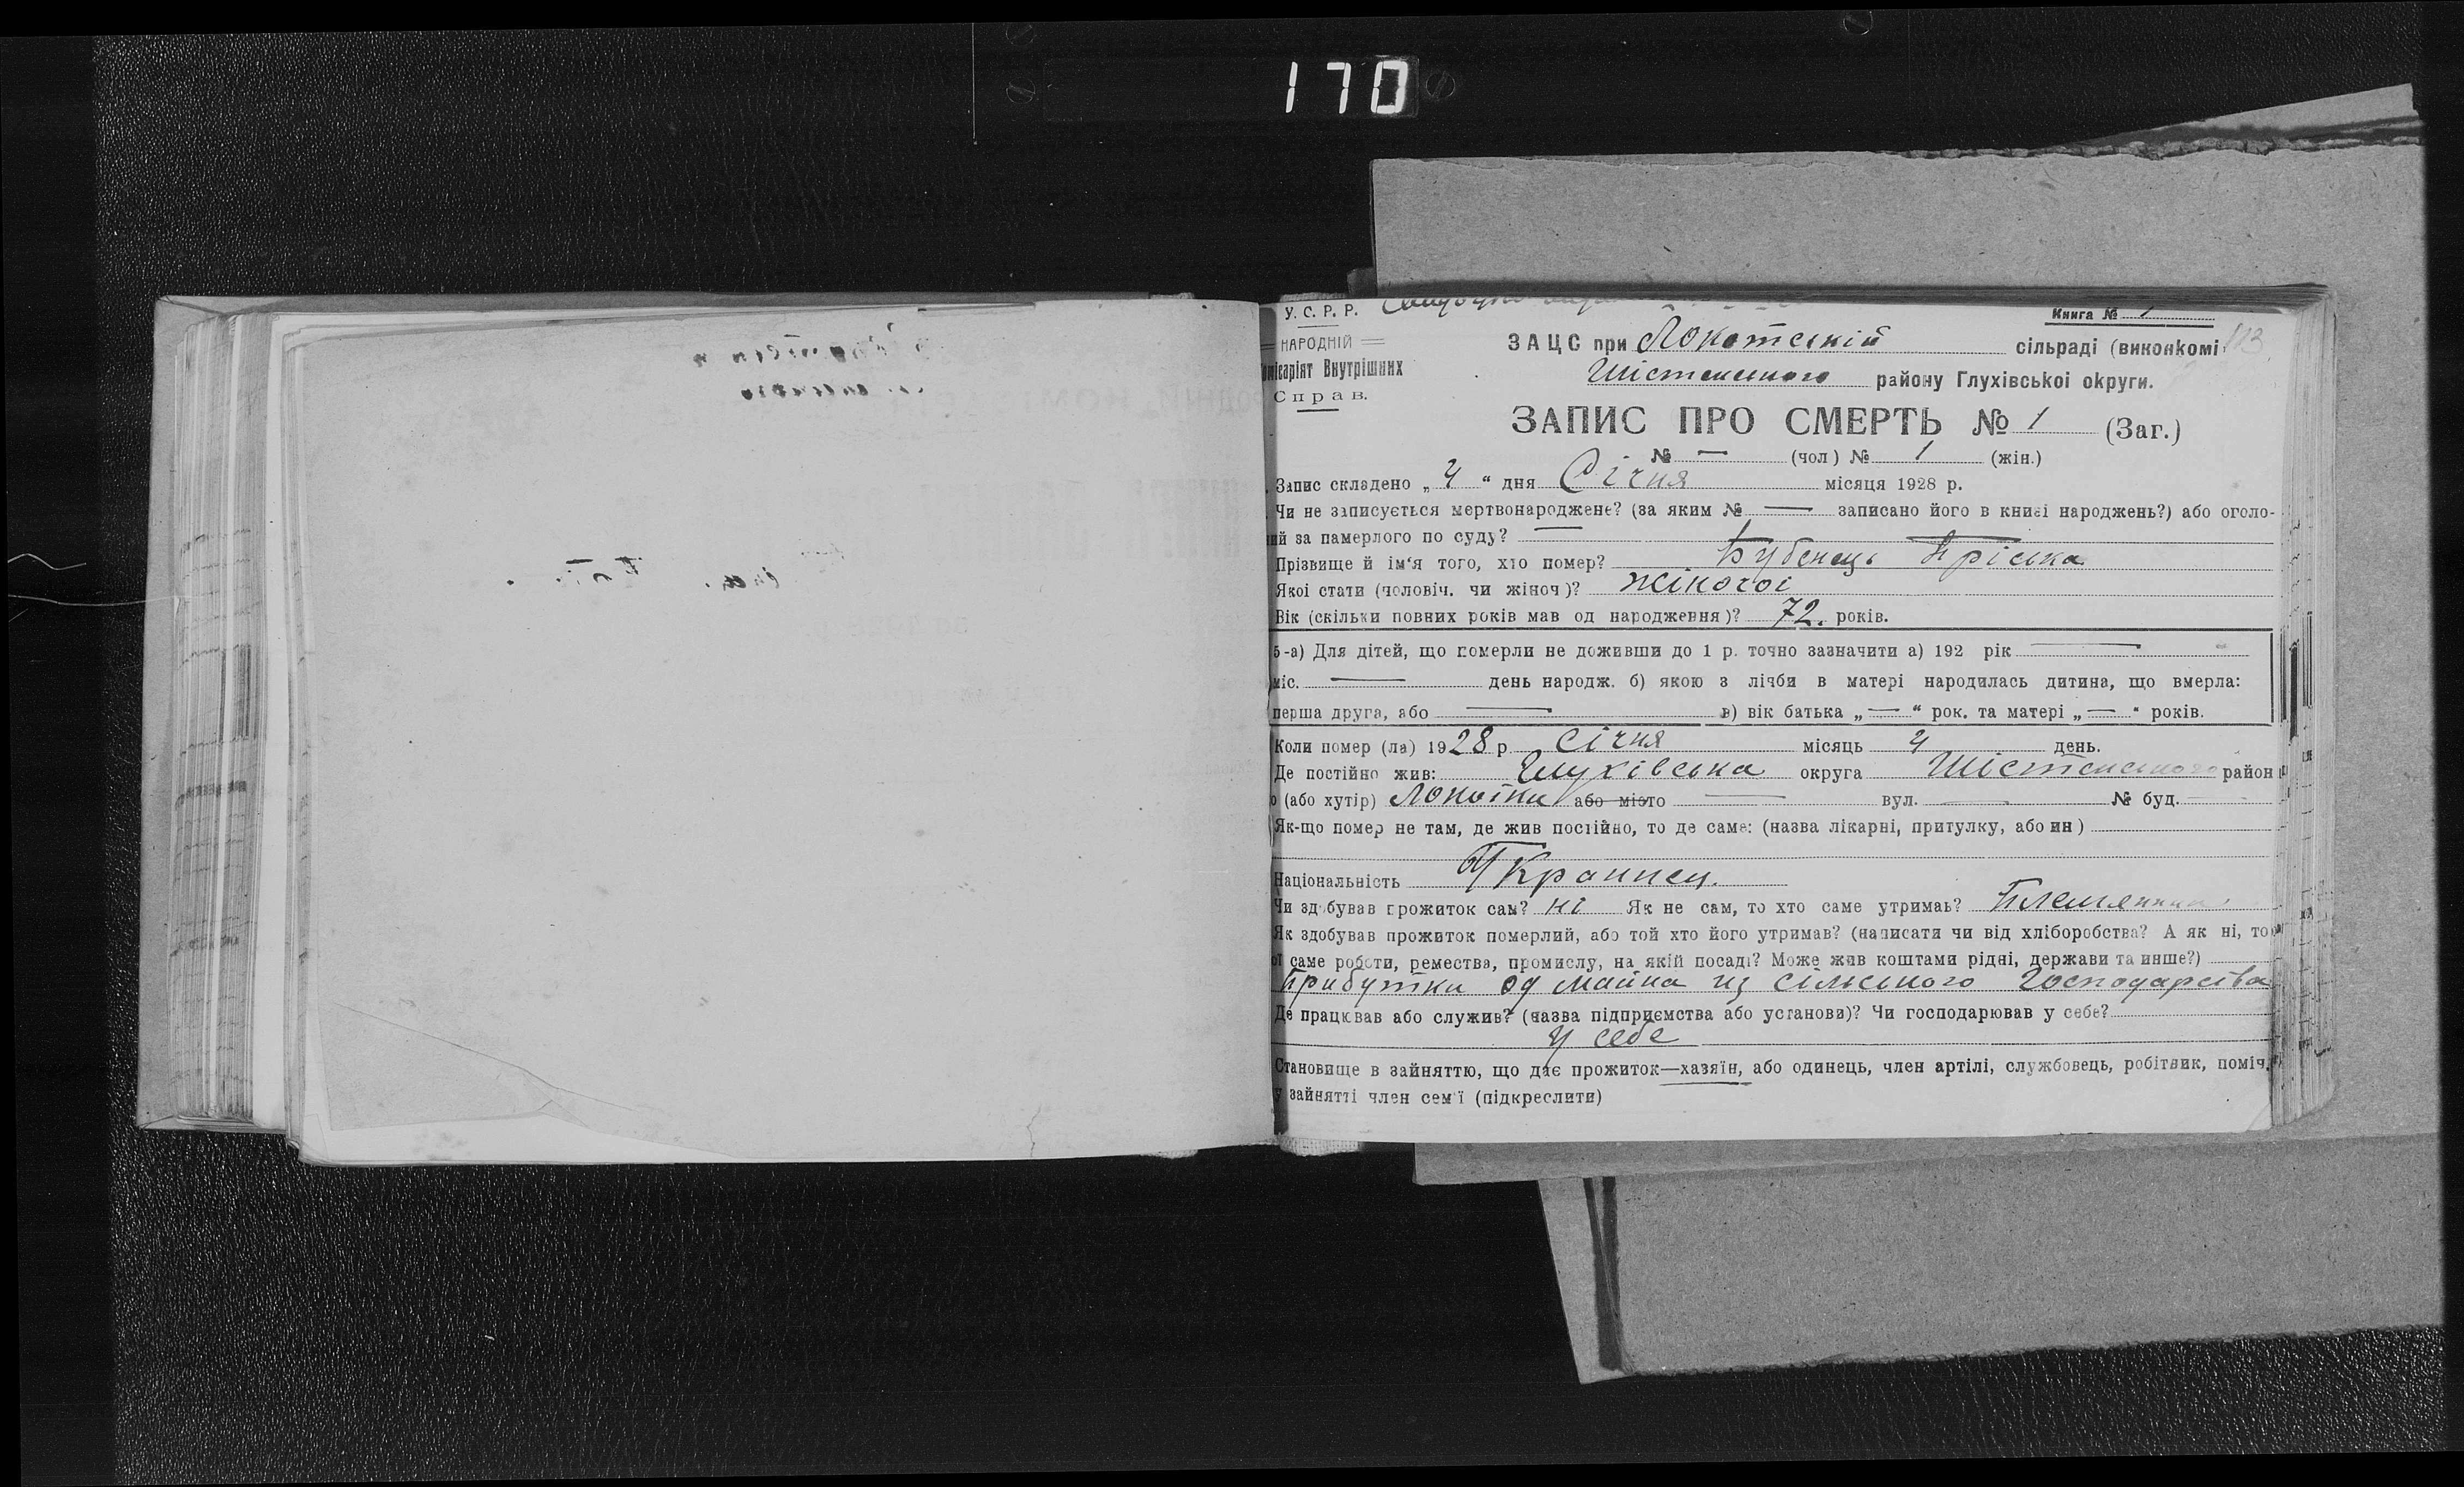 170
У. С. Р. Р.
Книга № 1
НАРОДНІЙ
ЗАЦС при Локотській сільраді (виконкомі
113
місаріят Внутрішних
Шістенського району Глухівської округи.
Справ.
ЗАПИС ПРО СМЕРТЬ № 1 (Заг.)
№ — (чол) № 1 (жін.)
Запис складено „ 4 “ дня Січня місяця 1928 р.
Чи не записується мертвонароджене? (за яким № — записано його в книзі народжень?) або оголо-
ий за памерлого по суду? —
Прізвище й ім'я того, хто помер? Бубенець Пріська
Якої стати (чоловіч. чи жіноч)? жіночої
Вік (скільки повних років мав од народження)? 72. років.
5-а) Для дітей, що померли не доживши до 1 р. точно зазначити а) 192 рік —
міс. — день народж. б) якою з лічби в матері народилась дитина, що вмерла:
перша друга, або — в) вік батька „ — “ рок. та матері „ — “ років.
Коли помер (ла) 1928 р. Січня місяць 4 день.
Де постійно жив: Глухівська округа Шістенського район
о (або хутір) Локотки або місто — вул. — № буд. —
Як-що помер не там, де жив постійно, то де саме: (назва лікарні, притулку, або ин)
Національність Українец.
Чи здобував прожиток сам? ні Як не сам, то хто саме утримав? Племянник
Як здобував прожиток померлий, або той хто його утримав? (написати чи від хліборобства? А як ні, то
от саме роботи, ремества, промислу, на якій посаді? Може жив коштами рідні, держави та инше?)
Прибутки од майна из сільського господарства
Де працював або служив? (назва підприємства або установи)? Чи господарював у себе?
У себе
Становище в зайняттю, що дає прожиток—хазяїн, або одинець, член артілі, службовець, робітник, поміч.
у зайнятті член сем'ї (підкреслити)